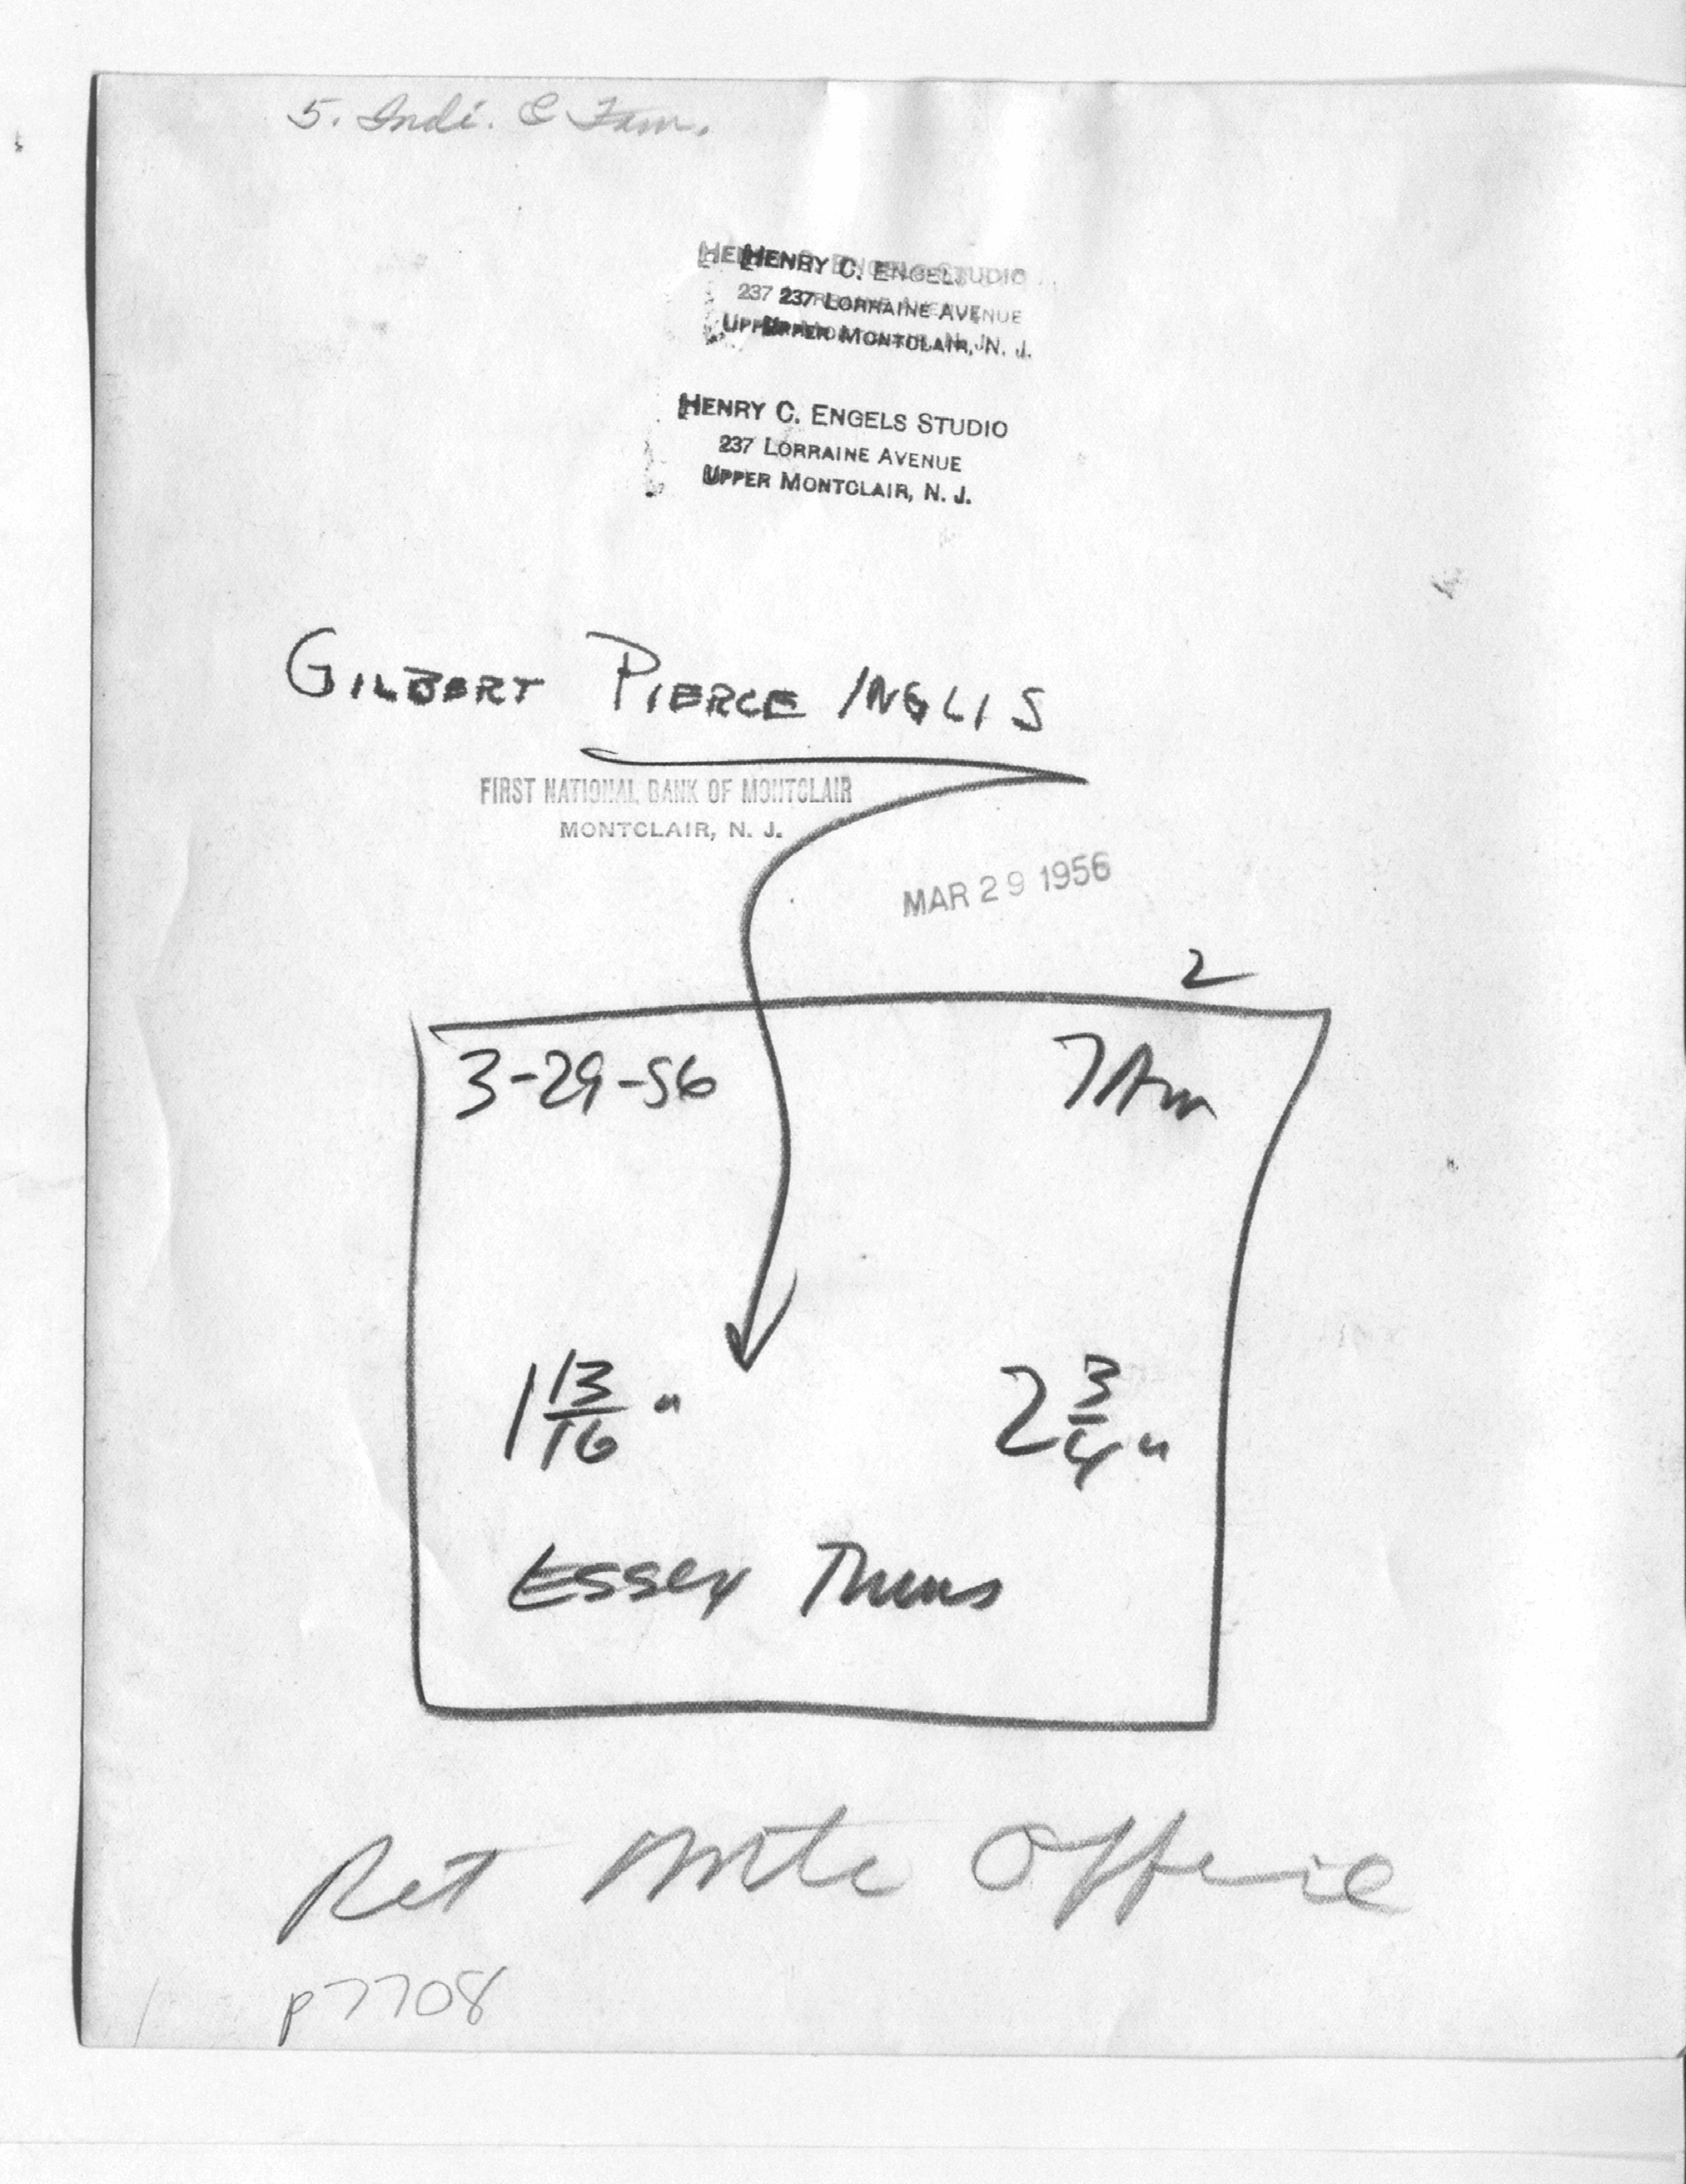 5. Indi. & Fam.
HENRY C. ENGELS STUDIO
237 LORRAINE AVENUE
UPPER MONTCLAIR, N. J.
HENRY C. ENGELS STUDIO
237 LORRAINE AVENUE
UPPER MONTCLAIR, N. J.
GILBERT PIERCE INGLIS
FIRST NATIONAL BANK OF MONTCLAIR
MONTCLAIR, N. J.
MAR 29 1956
2
3-29-56 7AM
1 13/16 " 2 3/4 "
Essex Thurs
Ret Mtc Office
p7708